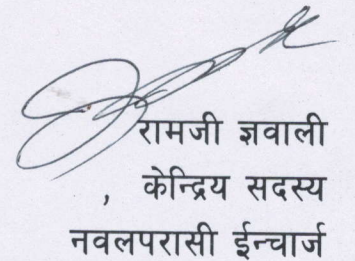 रामजी ज्ञवाली
, केन्द्रिय सदस्य
नवलपरासी ईन्चार्ज